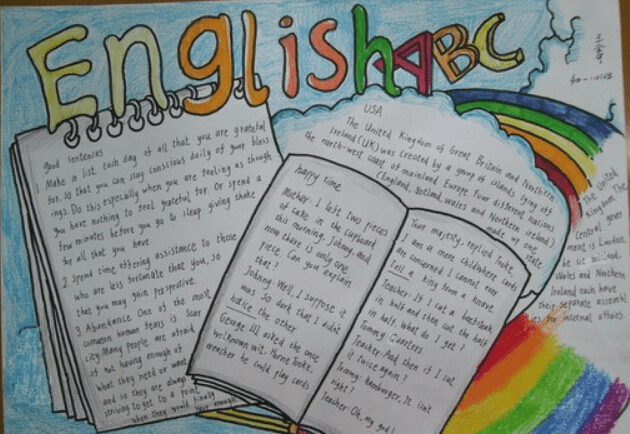 English ABC
good sentences
1. Make a list each day of all that you are grateful
for. so that you can stay conscious daily of your bless
ings. Do this especially when you are feeling as though
you have nothing to feel grateful for. Or spend a
few minutes before you go to sleep giving thanks
for all that you have
2. Spend time offering assistance to those
who are less fortunate that you, so
that you may gain perspective.
3. Abundance One of the most
common human fears is scar
city. Many people are afraid
of not having enough of
what they need or want
and so they are always
striving to get to a point
when they would finally
have enough
happy time
Mother: I left two pieces
of cake in the cupboard
this morning, Johnny. And
now there is only one
piece. Can you explain
that?
Johnny: Well, I suppose it
was so dark that I didn't
notice the other
George III, asked the once
well known wit. Horne Tooke.
weather he could play cards
Your majesty, replied Tooke,
I am a mere child where cards
are concerned I cannot even
tell a king from a knave
Teacher: If I cut a beefsteak
in half and then cut the half
in half. What do I get?
Tommy: quarters.
Teacher: And then if I cut
it twice again?
Tommy: Hamburger, It isn't
right!
Teacher: Oh, my god!
USA
The United Kingdom of Great Britain and Northern
Ireland (UK) was created by a group of islands lying off
the north-west coast of mainland Europe Four different nations
(England, Scotland, wales and Northern ireland)
made up one
state
The United
Kingdom The
Central gover
ment is London,
Wales and Northern
Ireland each have
their separate assembl
ies for internal affairs.